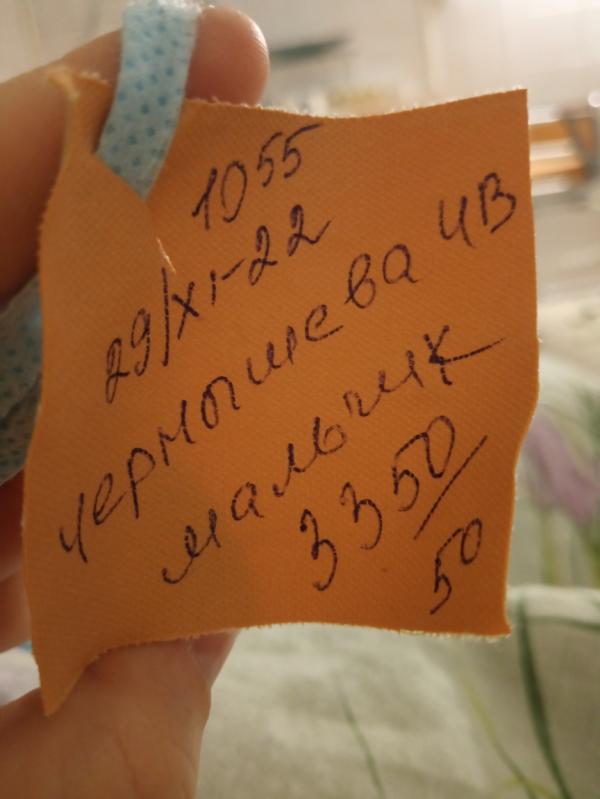 1055
29/XI-22
Чернышева ЧВ
мальчик
3350/50